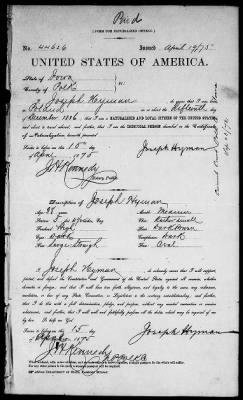 Paid
[FORM FOR NATURALIZED CITIZEN.]
No. 44626 Issued April 19/75
UNITED STATES OF AMERICA.
State of Iowa
County of Polk
I, Joseph Hyman, do swear that I was born
in Poland on or about the fifteenth day of
December 1846, that I am a NATURALIZED AND LOYAL CITIZEN OF THE UNITED STATES,
and about to travel abroad; and further, that I am the IDENTICAL PERSON described in the Certificate
of Naturalization herewith presented.
Sworn to before me this 15th
day of April 1875
Joseph Hyman
J. H. Kennedy
Notary Public
Description of Joseph Hyman
Age: 28 years Mouth: Medium
Stature: 5 feet inches, Eng. Chin:
Forehead: High Hair: Dark Brown
Eyes: Dark Complexion: Dark
Nose: Face: Oval
I, Joseph Hyman, do solemnly swear that I will support,
protect, and defend the Constitution and Government of the United States against all enemies, whether
domestic or foreign; and that I will bear true faith, allegiance, and loyalty to the same, any ordinance,
resolution, or law of any State, Convention, or Legislature to the contrary notwithstanding; and further,
that I do this with a full determination, pledge, and purpose, without any mental reservation or evasion
whatsoever; and further, that I will well and faithfully perform all the duties which may be required of me
by law: So help me God.
Sworn to before me this 15
day of April 1875
Joseph Hyman
J. H. Kennedy